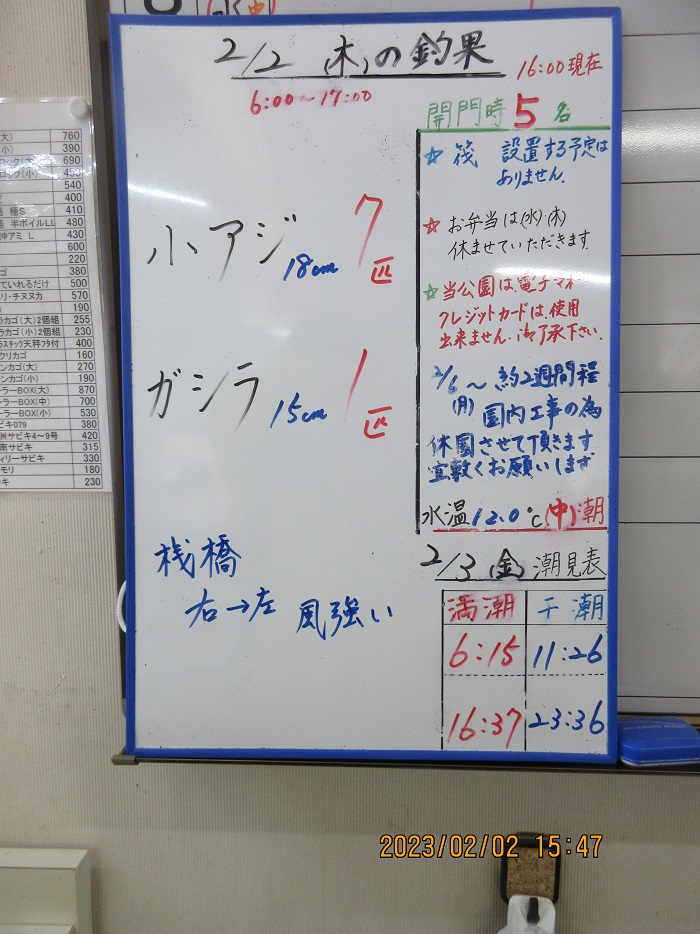 (水)中
2/2 (木)の釣果
16:00現在
6:00~17:00
開門時 5 名
☆ 筏 設置する予定は
ありません.
☆ お弁当は(水)(木)
休ませていただきます.
☆ 当公園は、電子マネ
クレジットカードは、使用
出来ません。御了承下さい.
2/6~ 約2週間程
(月) 園内工事の為
休園させて頂きます
宜敷くお願いします
水温 12.0℃ (中)潮
小アジ 18cm 7匹
ガシラ 15cm 1匹
桟橋
右→左 風強い
2/3 (金) 潮見表
満潮 干潮
6:15 11:26
16:37 23:36
大) 760
小) 390
ロック(大) 690
ロック(小)
540
400
極S 410
半ボイルLL 480
沖アミ L 430
600
220
380
ていれるだけ 500
リ・チヌヌカ 570
190
ラカゴ(大)2個組 255
ラカゴ(小)2個組 230
ラスチック天秤フタ付 400
クリカゴ 160
ンカゴ(大) 270
ンカゴ(小) 190
ーラーBOX(大) 870
ーラーBOX(中) 700
ーラーBOX(小) 530
ビキ079 380
サビキ4~9号 420
南サビキ 315
ィリーサビキ 330
モリ 180
キ 230
2023/02/02 15:47